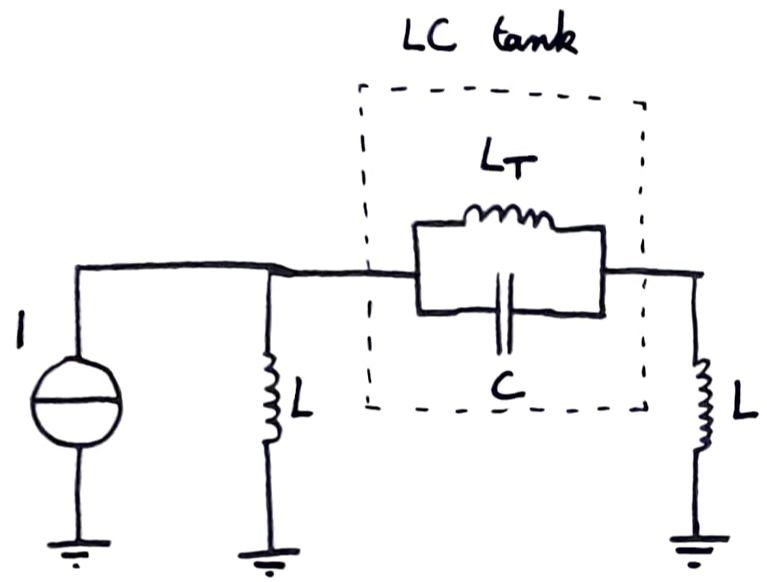 LC tank
LT
I
C
L
L